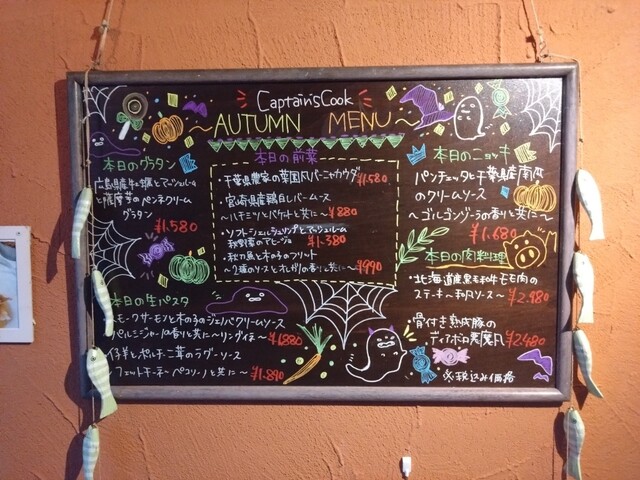 Captain's Cook
～AUTUMN MENU～
本日のグラタン
広島県産牡蠣とマッシュルーム
と薩摩芋のペンネクリーム
グラタン
¥1.580
本日の生パスタ
スモークサーモンと木の子のジェノバクリームソース
パルミジャーノの香りと共に～リングイネ～ ¥1.880
仔羊とポルチーニ茸のラグーソース
フェットチーネ～ペコリーノと共に～ ¥1.890
本日の前菜
・千葉県農家の菜園風バーニャカウダ ¥1.580
・宮崎県産鶏白レバームース
～ハチミツとバケットと共に～ ¥880
・ソフトシェルシュリンプとマッシュルーム
のアヒージョ ¥1.380
・秋刀魚と木の子のフリット
～2種のソースとオレガノの香りと共に～ ¥990
本日のニョッキ
パンチェッタと千葉県産南瓜
のクリームソース
～ゴルゴンゾーラの香りと共に～
¥1.680
本日の肉料理
・北海道産黒毛和牛モモ肉の
ステーキ～和風ソース～ ¥2.980
・骨付き熟成豚の
ディアボロ悪魔風 ¥2.480
※税込み価格